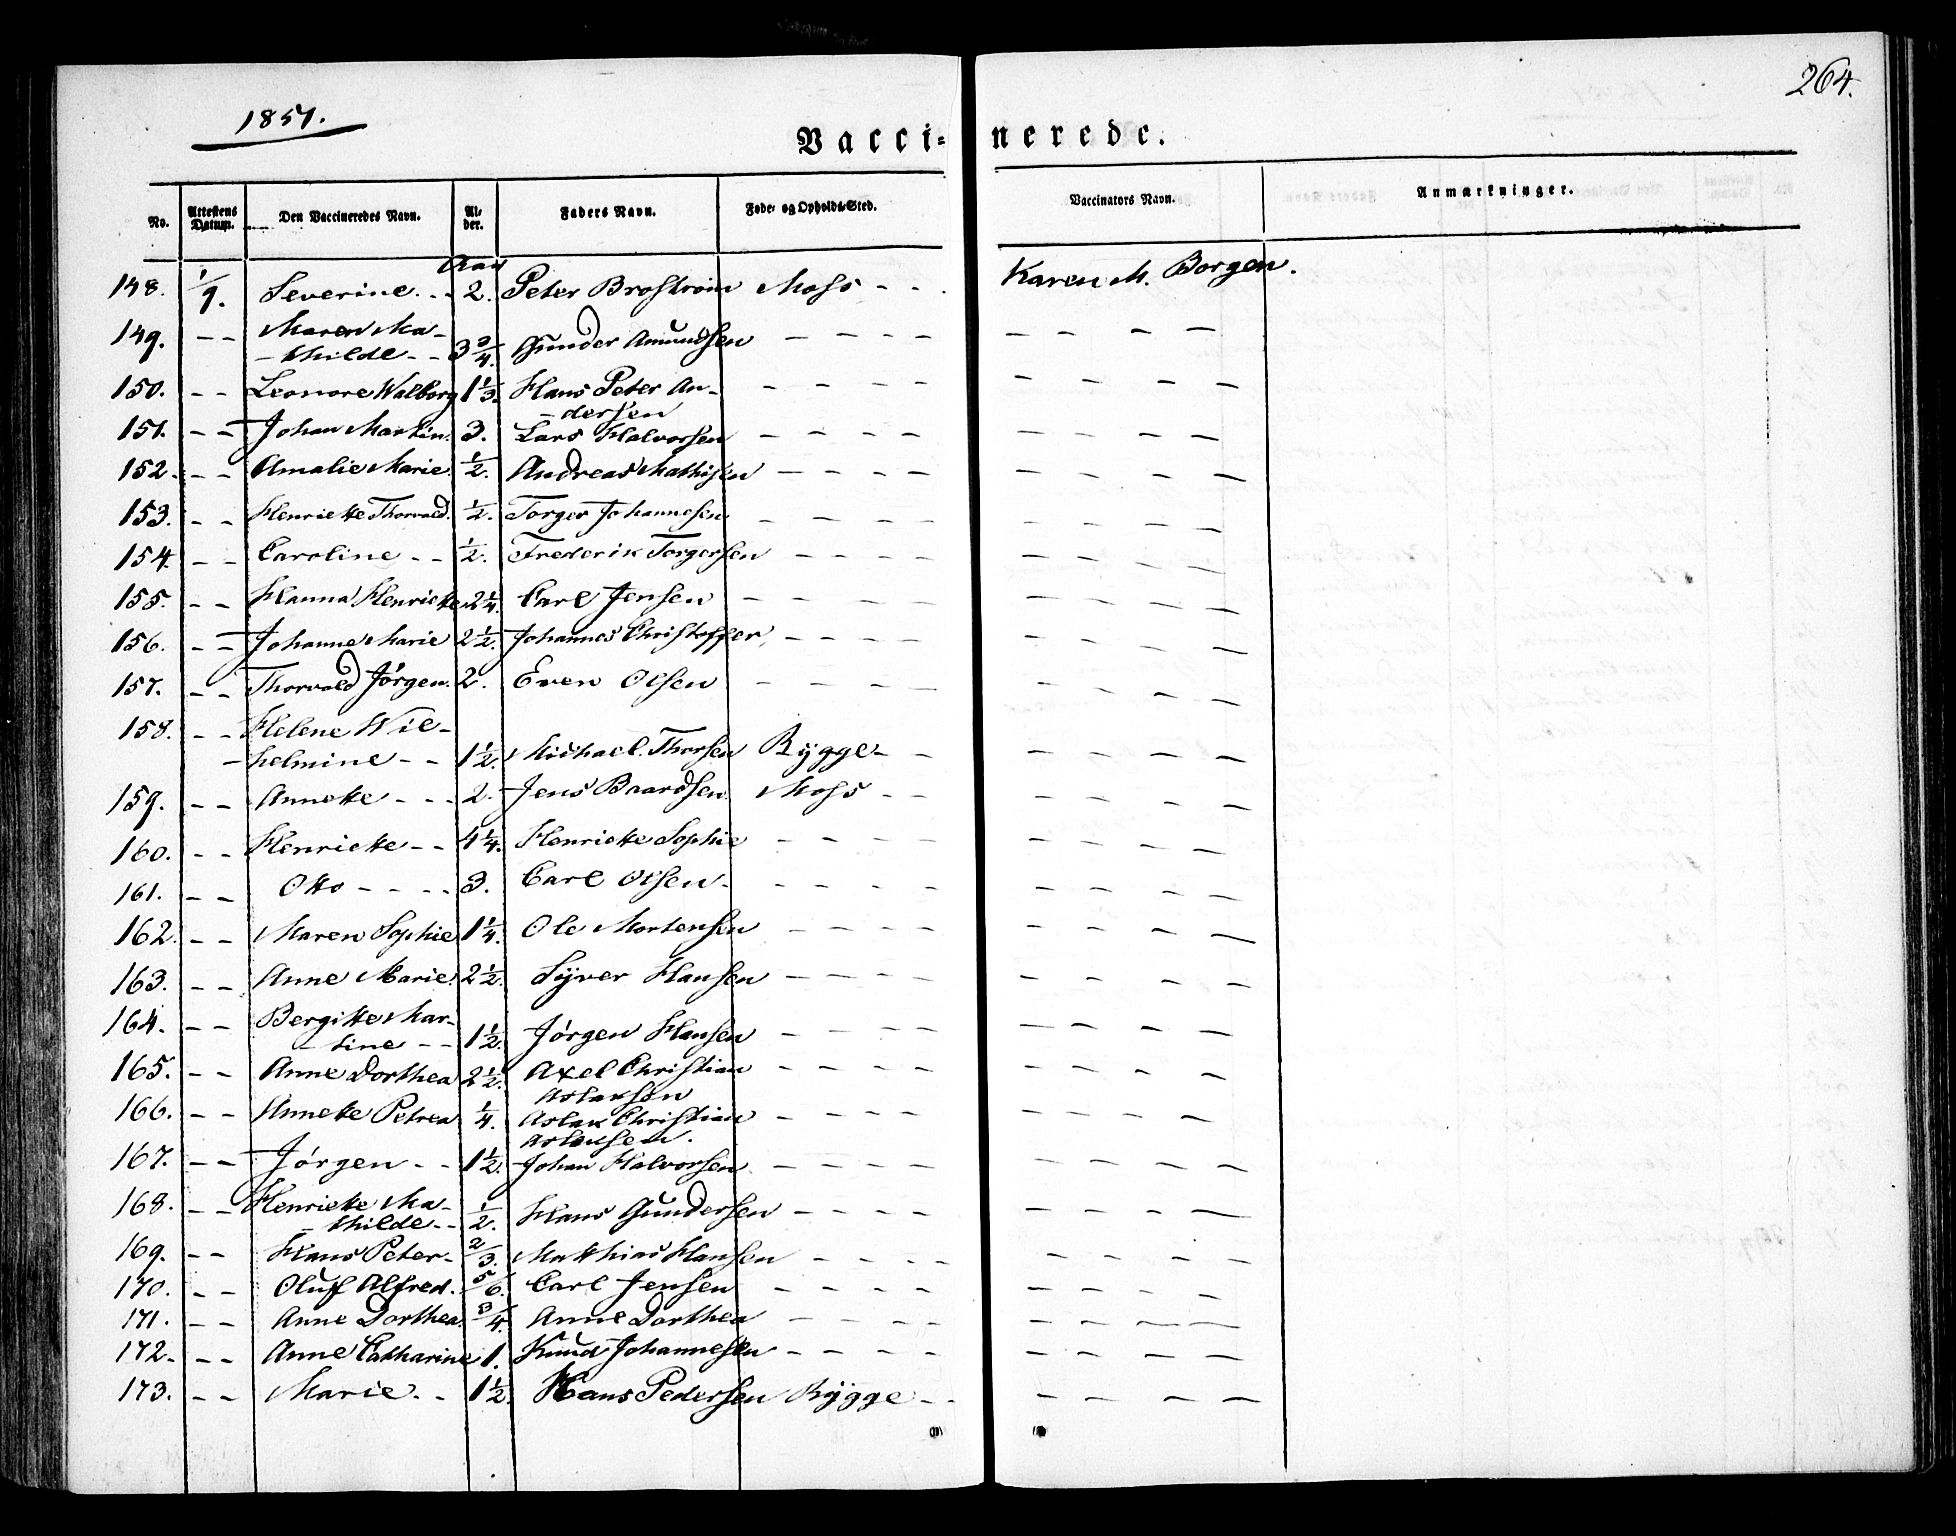 264.
1851.
Vacci- nerede.
No. Attestens Datum. Den Vaccineredes Navn. Al- der. Faders Navn. Føde- og Opholds-Sted. Vaccinators Navn. Anmærkninger.
Aar
148. 1/9. Severine. - - 2. Peter Brostrøm Moss - - - Karen M. Borgen.
149. - - Maren Ma-
- thilde - - 3 3/4. Gunder Amundsen - - - - - - - -
150. - - Leonore Walborg 1 1/3. Hans Peter An- - - - - - - - -
- dersen
151. - - Johan Martin. 3. Lars Halvorsen - - - - - - - -
152. - - Amalie Marie. 1/2. Andreas Mathisen - - - - - - - -
153. - - Henriette Thorvald. 1/2. Torger Johannesen - - - - - - - -
154. - - Caroline - - 1/2. Frederik Torgersen - - - - - - - -
155. - - Hanna Henriette 2 1/4. Carl Jensen - - - - - - - -
156. - - Johanne Marie 2 1/2. Johannes Christoffer, - - - - - - - -
157. - - Thorvald Jørgen. 2. Even Olsen - - - - - - - -
158. - - Helene Wil-
- helmine - - 1 1/2. Michael Thorsen Rygge - - - - - -
159. - - Annette - - - 2. Jens Baardsen. Moss - - - - - -
160. - - Henriette - - 4 1/4. Henriette Sophie - - - - - - - -
161. - - Otto - - - - 3. Carl Olsen - - - - - - - -
162. - - Maren Sophie 1 1/4. Ole Mortensen - - - - - - - -
163. - - Anne Marie. 2 1/2. Syver Hansen - - - - - - - -
164. - - Bergitte Mar-
- tine - - 1 1/2. Jørgen Hansen - - - - - - - -
165. - - Anne Dorthea 2 1/2. Axel Christian - - - - - - - -
Aslaksen
166. - - Annette Petrea 1/4. Aslak Christian - - - - - - - -
Aslaksen.
167. - - Jørgen - - 1 1/2. Johan Halvorsen - - - - - - - -
168. - - Henriette Ma-
- thilde - - 1/2. Hans Gundersen - - - - - - - -
169. - - Hans Peter - 2/3. Matthias Hansen - - - - - - - -
170. - - Oluf Alfred. 5/6. Carl Jensen - - - - - - - -
171. - - Anne Dorthea. 3/4. Anne Dorthea - - - - - - - -
172. - - Anne Catharine 1. Knud Johannesen - - - - - - - -
173. - - Marie. - - 1 1/2. Hans Pedersen Rygge - - - - - -